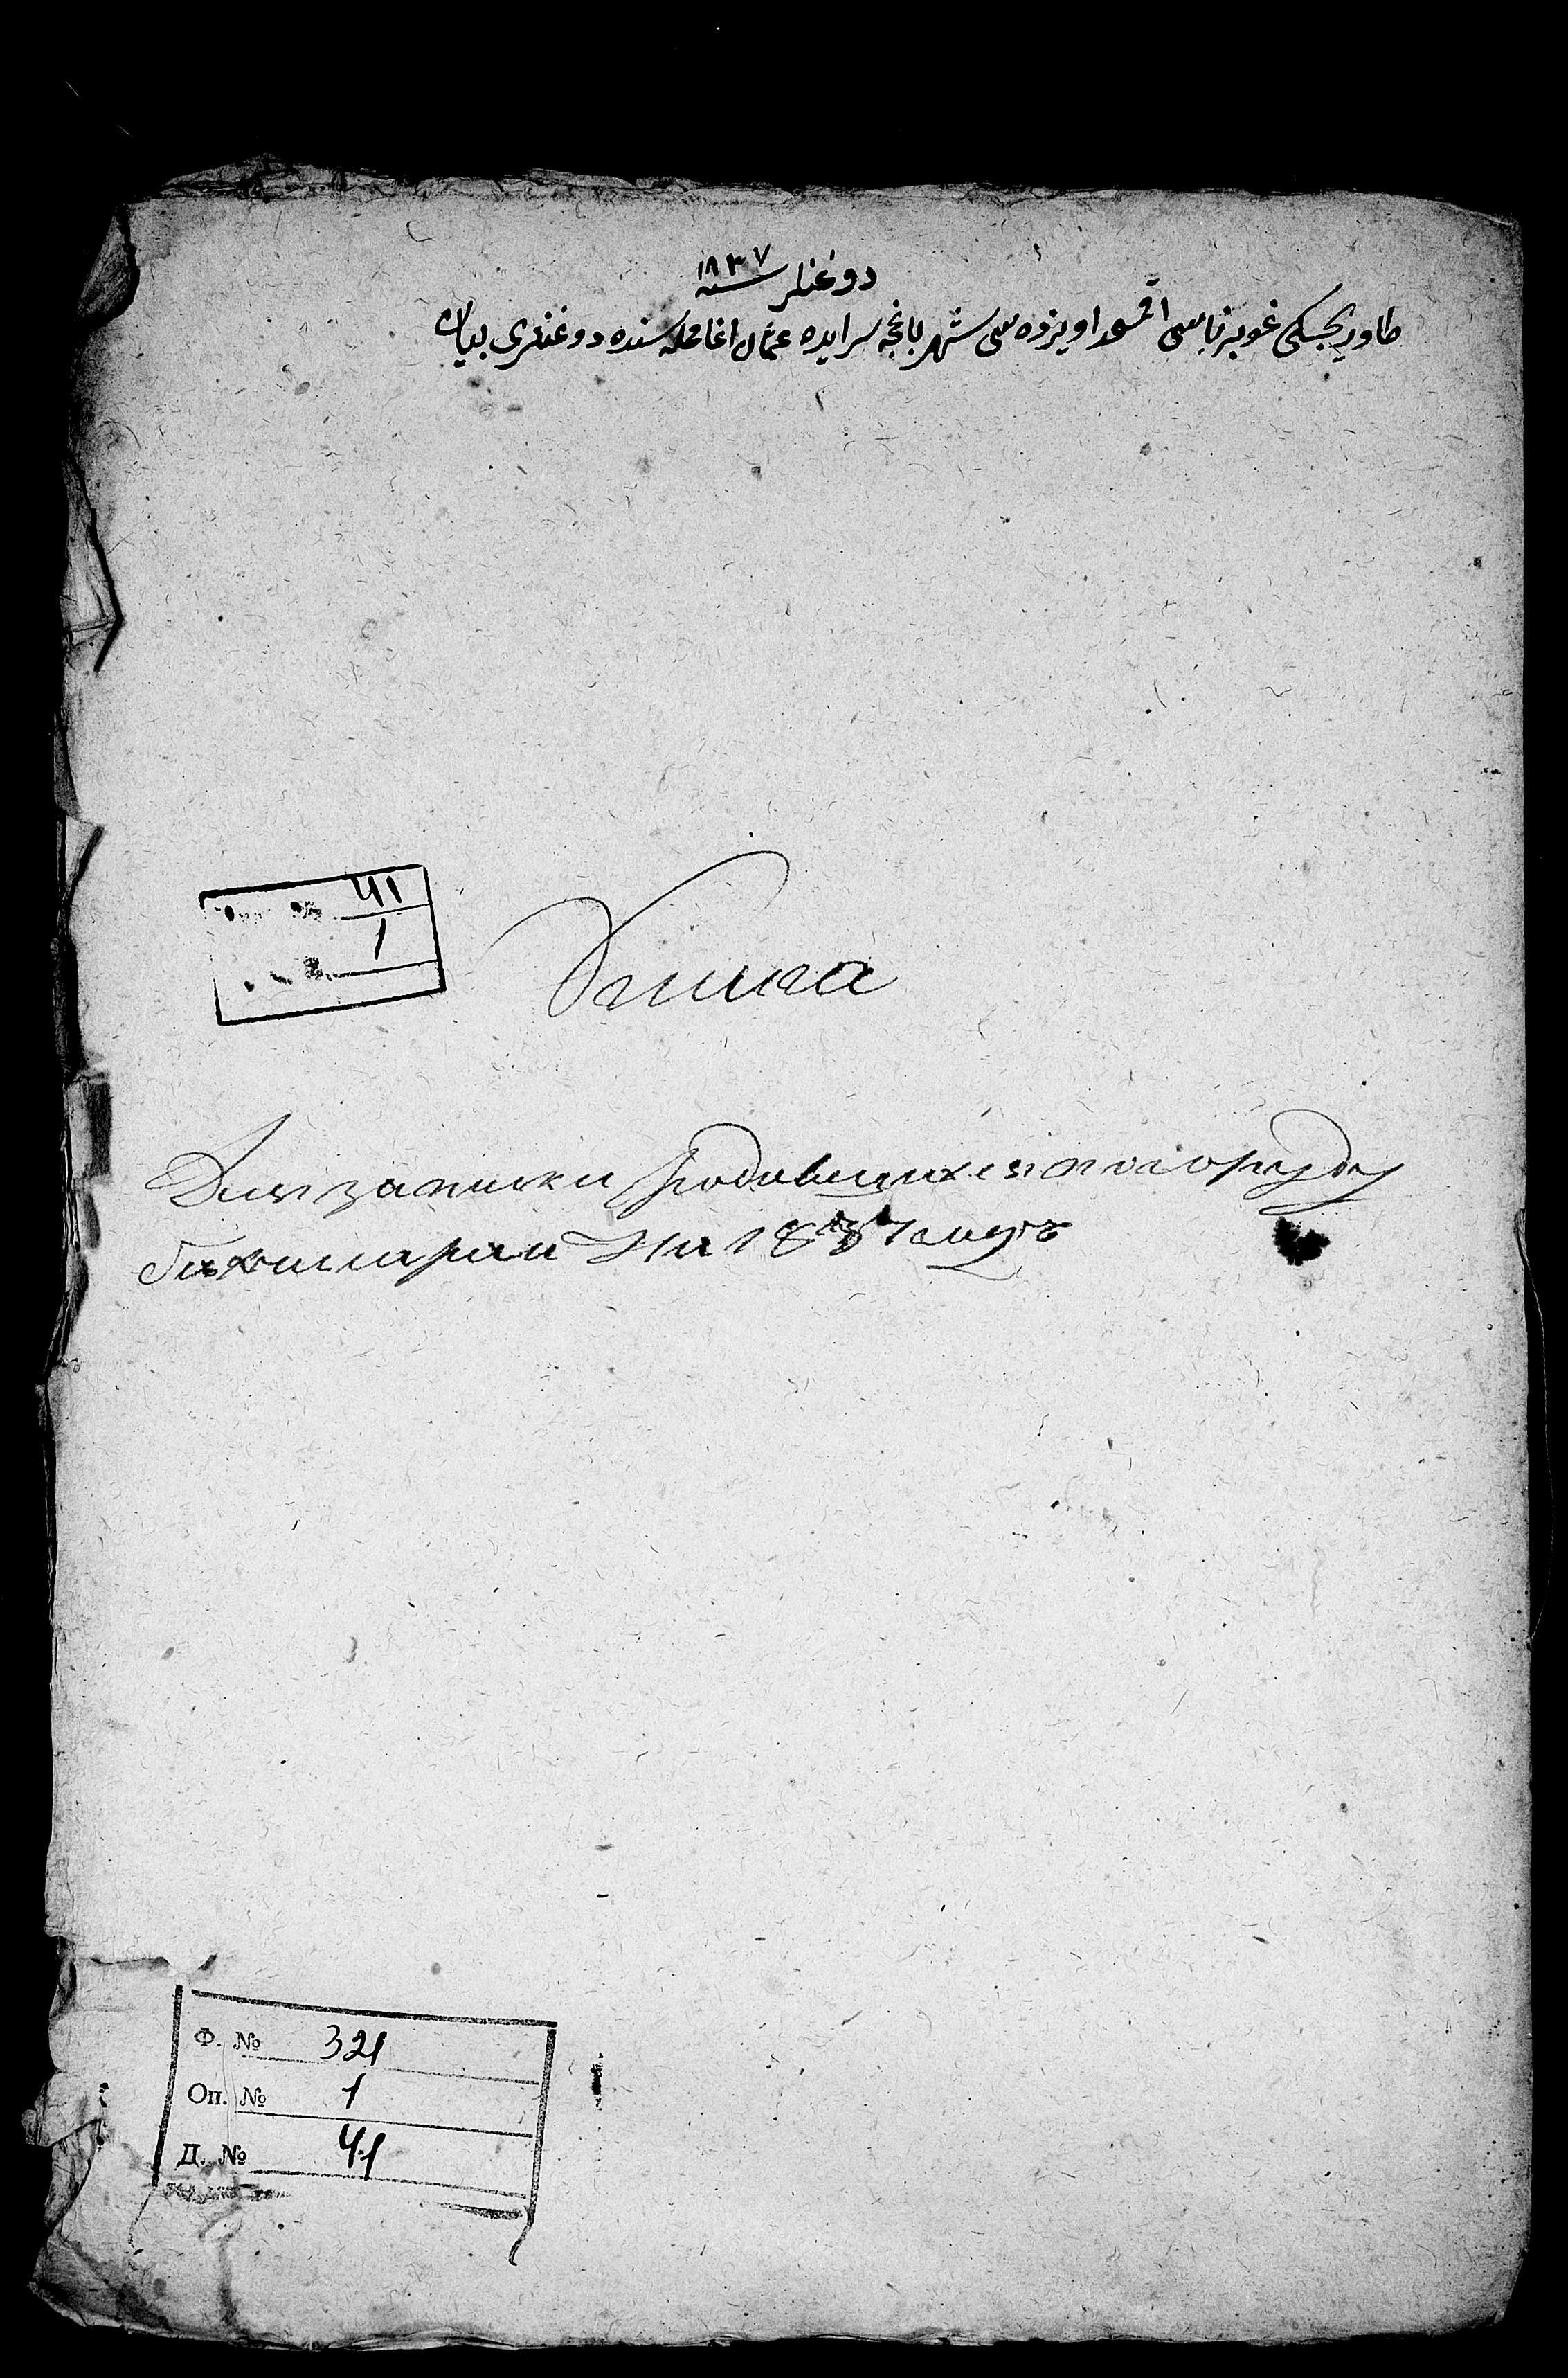 دوغنلر سنه ١٨٣٧
طاوريچسكى غوبرناسى اقمسجد اويزده سى شهر باغچه سرايده عثمان اغا محله سنده دوغنلرى بيان
41
1
Книга
Для записки родившихся по городу
бахчисараи На 1837 годъ
Ф. № 321
Оп. № 1
Д. № 41